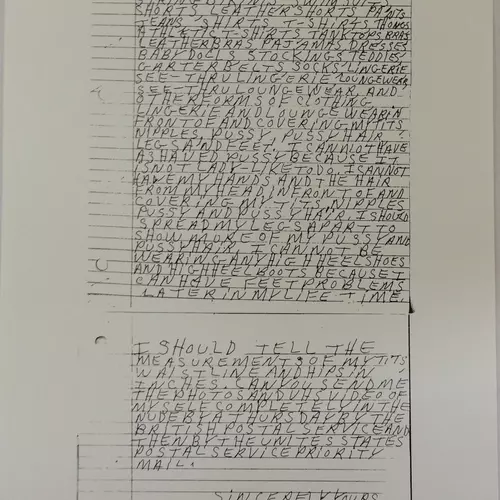 SHORTS LEATHER SHORTS PANTS
JEANS SHIRTS T-SHIRTS THONGS
ATHLETIC T-SHIRTS TANKTOPS BRAS
LEATHER BRAS PAJAMAS DRESSES
BABY DOLLS STOCKINGS TEDDIES
GARTER BELTS SOCKS LINGERIE
SEE-THRU LINGERIE LOUNGEWEAR
SEE-THRU LOUNGEWEAR AND
OTHER FORMS OF CLOTHING
LINGERIE AND LOUNGEWEAR IN
FRONT OF AND COVERING MY TITS
NIPPLES, PUSSY, PUSSY HAIR
LEGS AND FEET. I CANNOT HAVE
A SHAVED PUSSY BECAUSE IT
IS NOT LADY-LIKE TO DO. I CANNOT
HAVE MY HANDS AND THE HAIR
FROM MY HEAD, IN FRONT OF AND
COVERING MY TITS, NIPPLES
PUSSY AND PUSSY HAIR. I SHOULD
SPREAD MY LEGS APART TO
SHOW MORE OF MY PUSSY AND
PUSSY HAIR. I CANNOT BE
WEARING ANY HIGH HEEL SHOES
AND HIGH HEEL BOOTS BECAUSE I
CAN HAVE FEET PROBLEMS
LATER IN MY LIFE TIME.
I SHOULD TELL THE
MEASUREMENTS OF MY TITS
WAISTLINE AND HIPS IN
INCHES. CAN YOU SEND ME
THE PHOTOS AND VHS VIDEO OF
MYSELF COMPLETELY IN THE
NUDE BY THURSDAY BY THE
BRITISH POSTAL SERVICE AND
THEN BY THE UNITES STATES
POSTAL SERVICE PRIORITY
MAIL.
SINCERELY YOURS